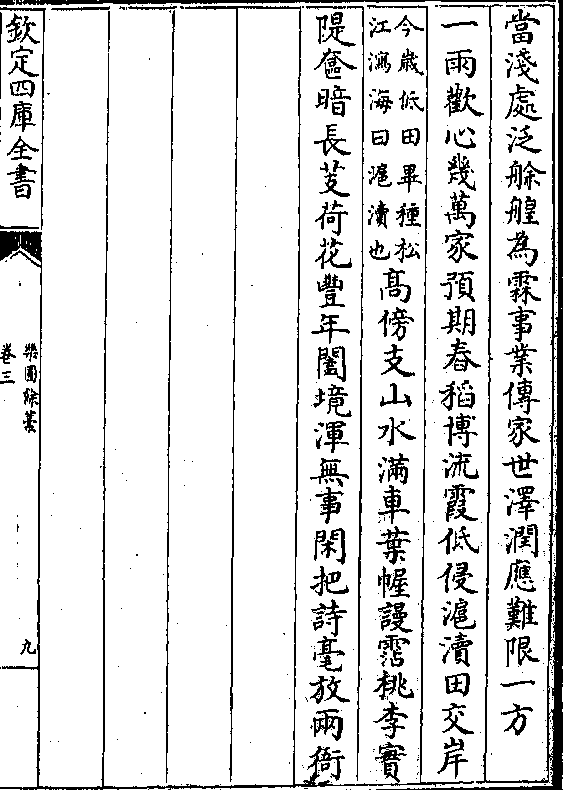 當淺處泛艅艎為霖事業傳家世澤潤應難限一方
一雨歡心幾萬家預期春稻博流霞低侵滬瀆田交岸
今歲低田畢種松
江瀉海曰滬瀆也
高傍支山水滿車葉幄謾霑桃李實
隄奩暗長芰荷花豐年闔境渾無事閑把詩毫放兩衙
欽定四庫全書
樂圃餘藁
卷三
九